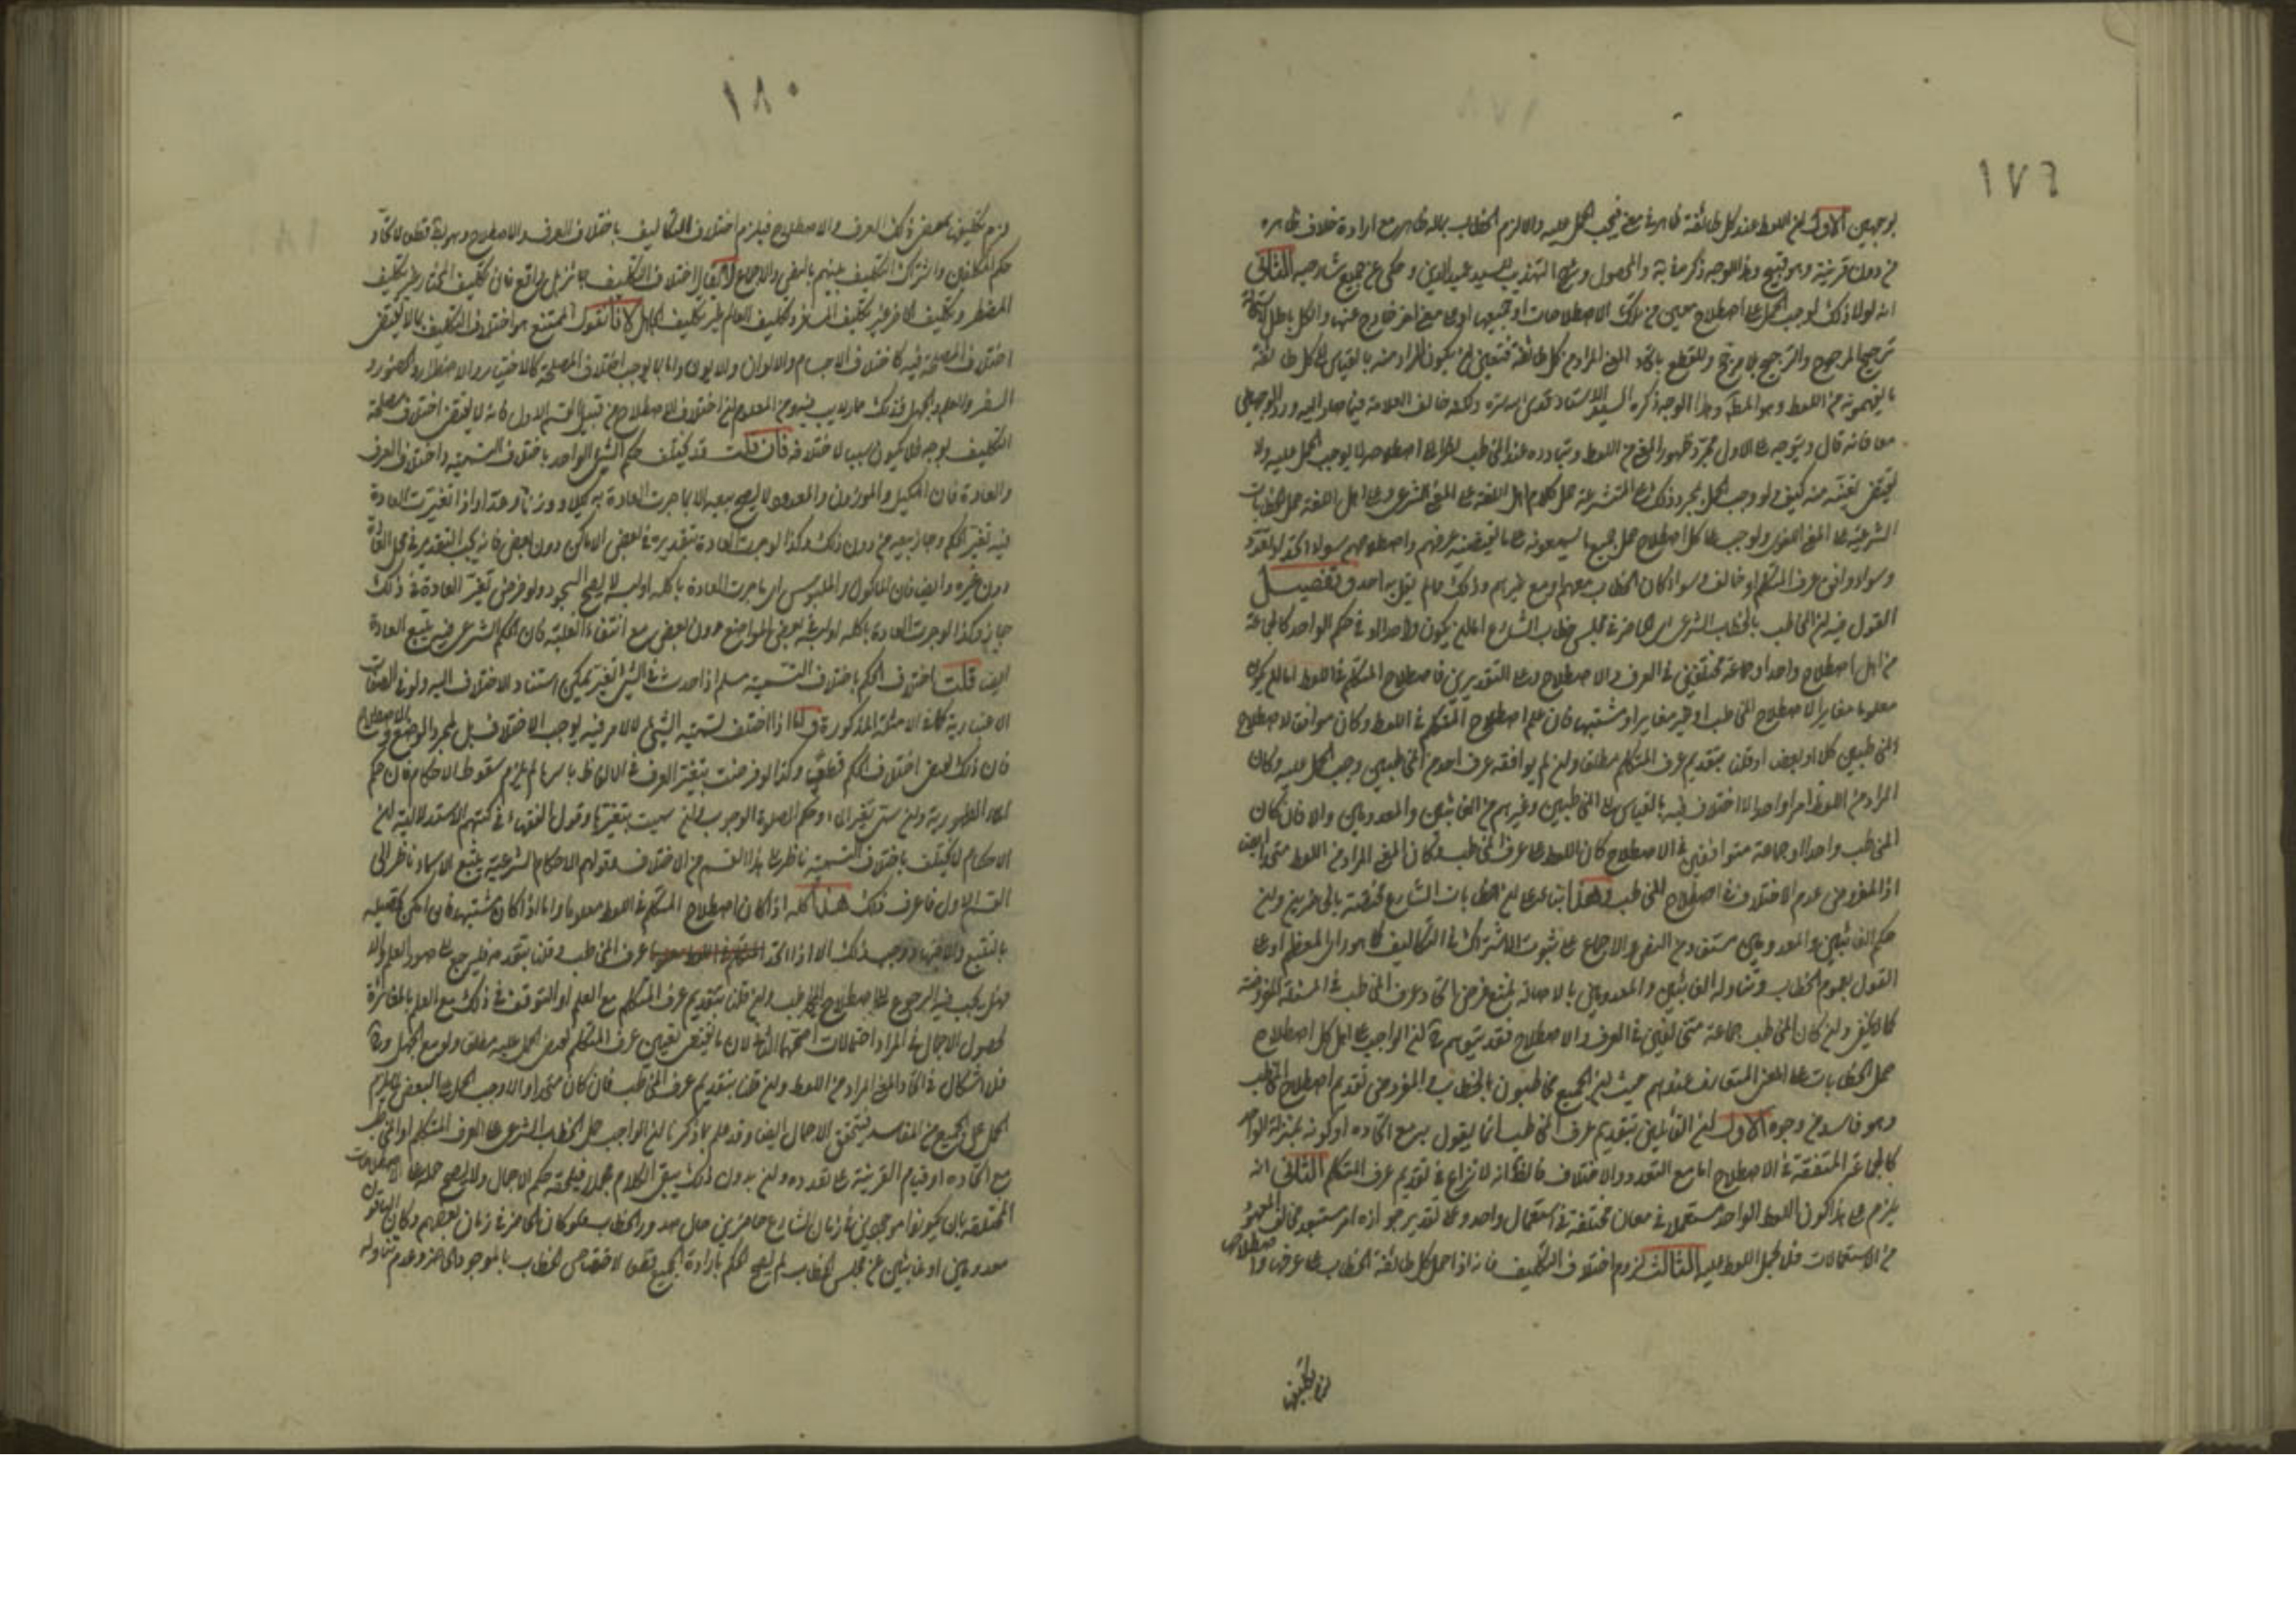 ١٧٩
بوجهين الاول ان اللفظ عند كل طائفة ظاهر في معنى فيجب الحمل عليه والا لزم الخطاب بماله ظاهر مع ارادة خلاف ظاهره
من دون قرينة وهو قبيح وهذا الوجه ذكره في النهاية والمحصول وشرح التهذيب للسيد عميد الدين وحكى عن جميع شارحيه الثاني
انه لولا ذلك لوجب الحمل على اصطلاح معين من تلك الاصطلاحات او جميعها او على معنى اخر خارج عنها والكل باطل
ترجيح المرجوح والترجيح بلا مرجح وللقطع باتحاد المعنى المراد من كل طائفة فتعين ان يكون المراد منه بالقياس الى كل طائفة
ما يفهمونه من اللفظ وهو المط وهذا الوجه ذكره السيد الاستاد قدس سره ولكنه خالف العلامة فيما صار اليه ورد الوجهين
معا فانه قال ويتوجه على الاول مجرد ظهور المعنى من اللفظ وتبادره عند المخاطب نظرا الى اصطلاحه لا يوجب الحمل عليه ولا
يقتضي تعينه منه كيف ولو وجب الحمل بمجرد ذلك على المتشرعة حمل كلام اهل اللغة على المعنى الشرعي وعلى اهل اللغة حمل الخطابات
الشرعية على المعنى اللغوي ولوجب على كل اصطلاح حمل جميع ما يسمعونه على ما يقتضيه عرفهم واصطلاحهم سواء اتحد او تعدد
وسواء وافق عرف المتكلم او خالف وسواء كان الخطاب معهم او مع غيرهم وذلك مما لم يقل به احد وتفصيل
القول فيه ان المخاطب بالخطاب الشرعي اي الحاضر في مجلس خطاب الشارع اما ان يكون واحدا او في حكم الواحد كالجماعة
من اهل اصطلاح واحد او جماعة مختلفين في العرف والاصطلاح وعلى التقديرين فاصطلاح المتكلم في اللفظ اما ان يكون
معلوما مغايرا لاصطلاح المخاطب او غير مغاير او مشتبها فان علم اصطلاح المتكلم في اللفظ وكان موافقا لاصطلاح
المخاطبين كلا او بعضا او قلنا بتقديم عرف المتكلم مطلقا وان لم يوافقه عرف احد من المخاطبين وجب الحمل عليه وكان
المراد من اللفظ امرا واحدا لا اختلاف فيه بالقياس الى المخاطبين وغيرهم من الغائبين والمعدومين والا فان كان
المخاطب واحدا او جماعة متوافقين في الاصطلاح كان اللفظ على عرف المخاطب وكان المعنى المراد من اللفظ متحدا ايضا
اذ المفروض عدم الاختلاف في اصطلاح المخاطب وهذا بناء على ان خطابات الشارع مختصة بالحاضرين وان
حكم الغائبين والمعدومين مستفاد من النص والاجماع على ثبوت الاشتراك في التكاليف كما هو راي المعظم او على
القول بعموم الخطاب وتناوله الغائبين والمعدومين بالاصالة يمتنع فرض اتحاد عرف المخاطب في المسئلة المفروضة
كما لا يخفى وان كان المخاطب جماعة مختلفين في العرف والاصطلاح فقد يتوهم ان الواجب على اهل كل اصطلاح
حمل الخطابات على المعنى المتعارف عندهم حيث ان الجميع مخاطبون بالخطاب والمفروض تقديم اصطلاح المخاطب
وهو فاسد من وجوه الاول ان القائلين بتقديم عرف المخاطب انما يقول به مع اتحاده او كونه بمنزلة الواحد
كالجماعة المتفقة في الاصطلاح اما مع التعدد والاختلاف فالظ انه لا نزاع في تقديم عرف المتكلم الثاني انه
يلزم على هذا كون اللفظ الواحد مستعملا في معان مختلفة في استعمال واحد وعلى تقدير جوازه امر مستبعد مخالف المعهود
من الاستعمالات فلا يحمل اللفظ عليه الثالث لزوم اختلاف التكليف فانه اذا حمل كل طائفة الخطاب على عرفها واصطلاحها
لزم تكليفها
١٨٠
لزم تكليفها بمقتضى ذلك العرف والاصطلاح فيلزم اختلاف التكاليف باختلاف العرف والاصطلاح وهو بط قطعا لاتحاد
حكم المكلفين واشتراك التكليف بينهم بالنص والاجماع لا يقال اختلاف التكليف جائز بل واقع فان تكليف المختار غير تكليف
المضطر وتكليف الحاضر غير تكليف المسافر وتكليف العالم غير تكليف الجاهل لانا نقول الممتنع هو اختلاف التكليف بما لا يقتضي
اختلاف المصلحة فيه كاختلاف الاجسام والالوان واما ما يوجب اختلاف المصلحة كالاختيار والاضطرار والحضور و
السفر والعلم والجهل فذلك مما لا ريب فيه ومن المعلوم ان اختلاف الاصطلاح من قبيل القسم الاول فانه لا يقتضي اختلاف مصلحة
التكليف بوجه فلا يكون سببا لاختلافه فان قلت قد يختلف حكم الشيء الواحد باختلاف التسمية واختلاف العرف
والعادة فان المكيل والموزون والمعدود لا يصح بيعه الا بما جرت العادة به كيلا ووزنا وعدا واذا تغيرت العادة
فيه تغير الحكم وجاز بيعه من دون ذلك وكذا لو جرت العادة بتقديره في بعض الاماكن دون بعض فانه يجب التقدير في محل العادة
دون غيره وايضا فان الماكول والملبوس اي ما جرت العادة باكله او لبسه لا يصح السجود ولو فرض تغير العادة في ذلك
جاز وكذا لو جرت العادة باكله او لبسه في بعض المواضع دون بعض مع انتفاء الغلبة فان الحكم الشرعي فيه يتبع العادة
ايضا قلت اختلاف الحكم باختلاف التسمية مسلم اذا حدث في الشيء تغير يمكن استناد الاختلاف اليه ولو في الصفات
الاعتبارية كما في الامثلة المذكورة واما اذا اختلف تسمية الشيء لا لامر فيه يوجب الاختلاف بل لمجرد الوضع والاصطلاح
فان ذلك لا يقتضي اختلاف الحكم قطعا وكذا لو فرضت تغير العرف في الالفاظ باسرها لم يلزم سقوط الاحكام فان حكم
الماء الطهورية وان سمي بغير الماء وحكم الصلوة الوجوب وان سميت بغيرها وقول الفقهاء في كتبهم الاستدلالية ان
الاحكام لا يختلف باختلاف التسمية ناظر الى هذا القسم من الاختلاف وقولهم الاحكام الشرعية يتبع الاسماء ناظر الى
القسم الاول فاعرف ذلك هذا كله اذا كان اصطلاح المتكلم في اللفظ معلوما واما اذا كان مشتبها فان امكن تحصيله
بالتتبع والاجتهاد وجب ذلك الا اذا اتحد عرف المخاطب وقلنا بتقديمه فليرجع الى صور العلم والا
فهل يجب فيه الرجوع الى اصطلاح المخاطب وان قلنا بتقديم عرف المتكلم مع العلم او التوقف في ذلك مع العلم بالمغايرة
لحصول الاجمال في المراد احتمالات اصحها الثاني لان ما يقتضي تعيين عرف المتكلم يقتضي الحمل عليه مطلقا ولو مع الجهل
فلا اشكال في اتحاد المعنى المراد من اللفظ وان قلنا بتقديم عرف المخاطب فان كان متحدا والا وجب الحمل على البعض لما يلزم
الحمل على الجميع من المفاسد فيتحقق الاجمال ايضا وقد علم مما ذكرنا ان الواجب حمل الخطاب الشرعي على العرف المتكلم او المخاطب
مع اتحاده او قيام القرينة على تعدده وان بدون ذلك يبقى الكلام مجملا فيلحقه حكم الاجمال ولا يصح حمله على الاصطلاحات
المختلفة بان يكونوا موجودين في زمان الشارع حاضرين حال صدور الخطاب فلو كان الحاضر في زمان بعضهم وكان الباقون
معدومين او غائبين عن مجلس الخطاب لم يصح الحكم بارادة الجميع قطعا لاختصاص الخطاب بالموجود الحاضر وعدم تناوله